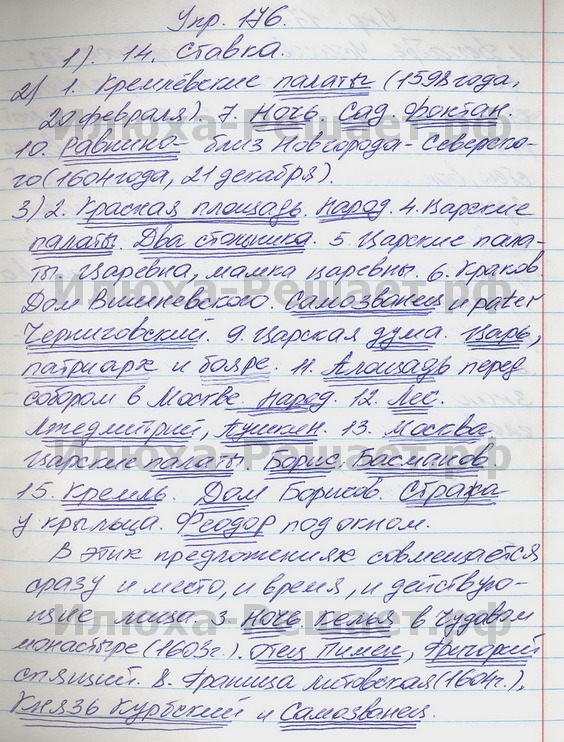 Упр. 176.
1). 14. Ставка.
2) 1. Кремлёвские палаты (1598 года,
20 февраля). 7. Ночь. Сад. Фонтан.
10. Равнина близ Новгорода-Северско-
го (1604 года, 21 декабря).
3) 2. Красная площадь. Народ. 4. Царские
палаты. Два стольника. 5. Царские пала-
ты. Царевна, мамка царевны. 6. Краков.
Дом Вишневского. Самозванец и pater
Черниковский. 9. Царская дума. Царь,
патриарх и бояре. 11. Площадь перед
собором в Москве. Народ. 12. Лес.
Лжедмитрий, Пушкин. 13. Москва.
Царские палаты. Борис. Басманов.
15. Кремль. Дом Борисов. Стража
у крыльца. Феодор под окном.
В этих предложениях совмещается
сразу и место, и время, и действую-
щие лица. 3. Ночь. Келья в Чудовом
монастыре (1603 г.). Отец Пимен, Григорий
спящий. 8. Граница литовская (1604 г.).
Князь Курбский и Самозванец.
Илюха-Решает.рф
Илюха-Решает.рф
Илюха-Решает.рф
Илюха-Решает.рф